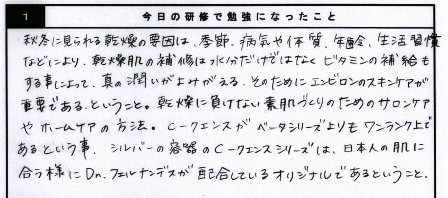 1 今日の研修で勉強になったこと
秋冬に見られる乾燥の要因は、季節、病気や体質、年齢、生活習慣
などにより、乾燥肌の補修は水分だけではなくビタミンの補給も
する事によって、真の潤いがよみがえる。そのためにエンビロンのスキンケアが
重要であるということ。乾燥に負けない素肌づくりのためのサロンケア
やホームケアの方法。C-クエンスがベータシリーズよりもワンランク上で
あるという事。シルバーの容器のC-クエンスシリーズは、日本人の肌に
合う様にDr.フェルナンデスが配合しているオリジナルであるということ。